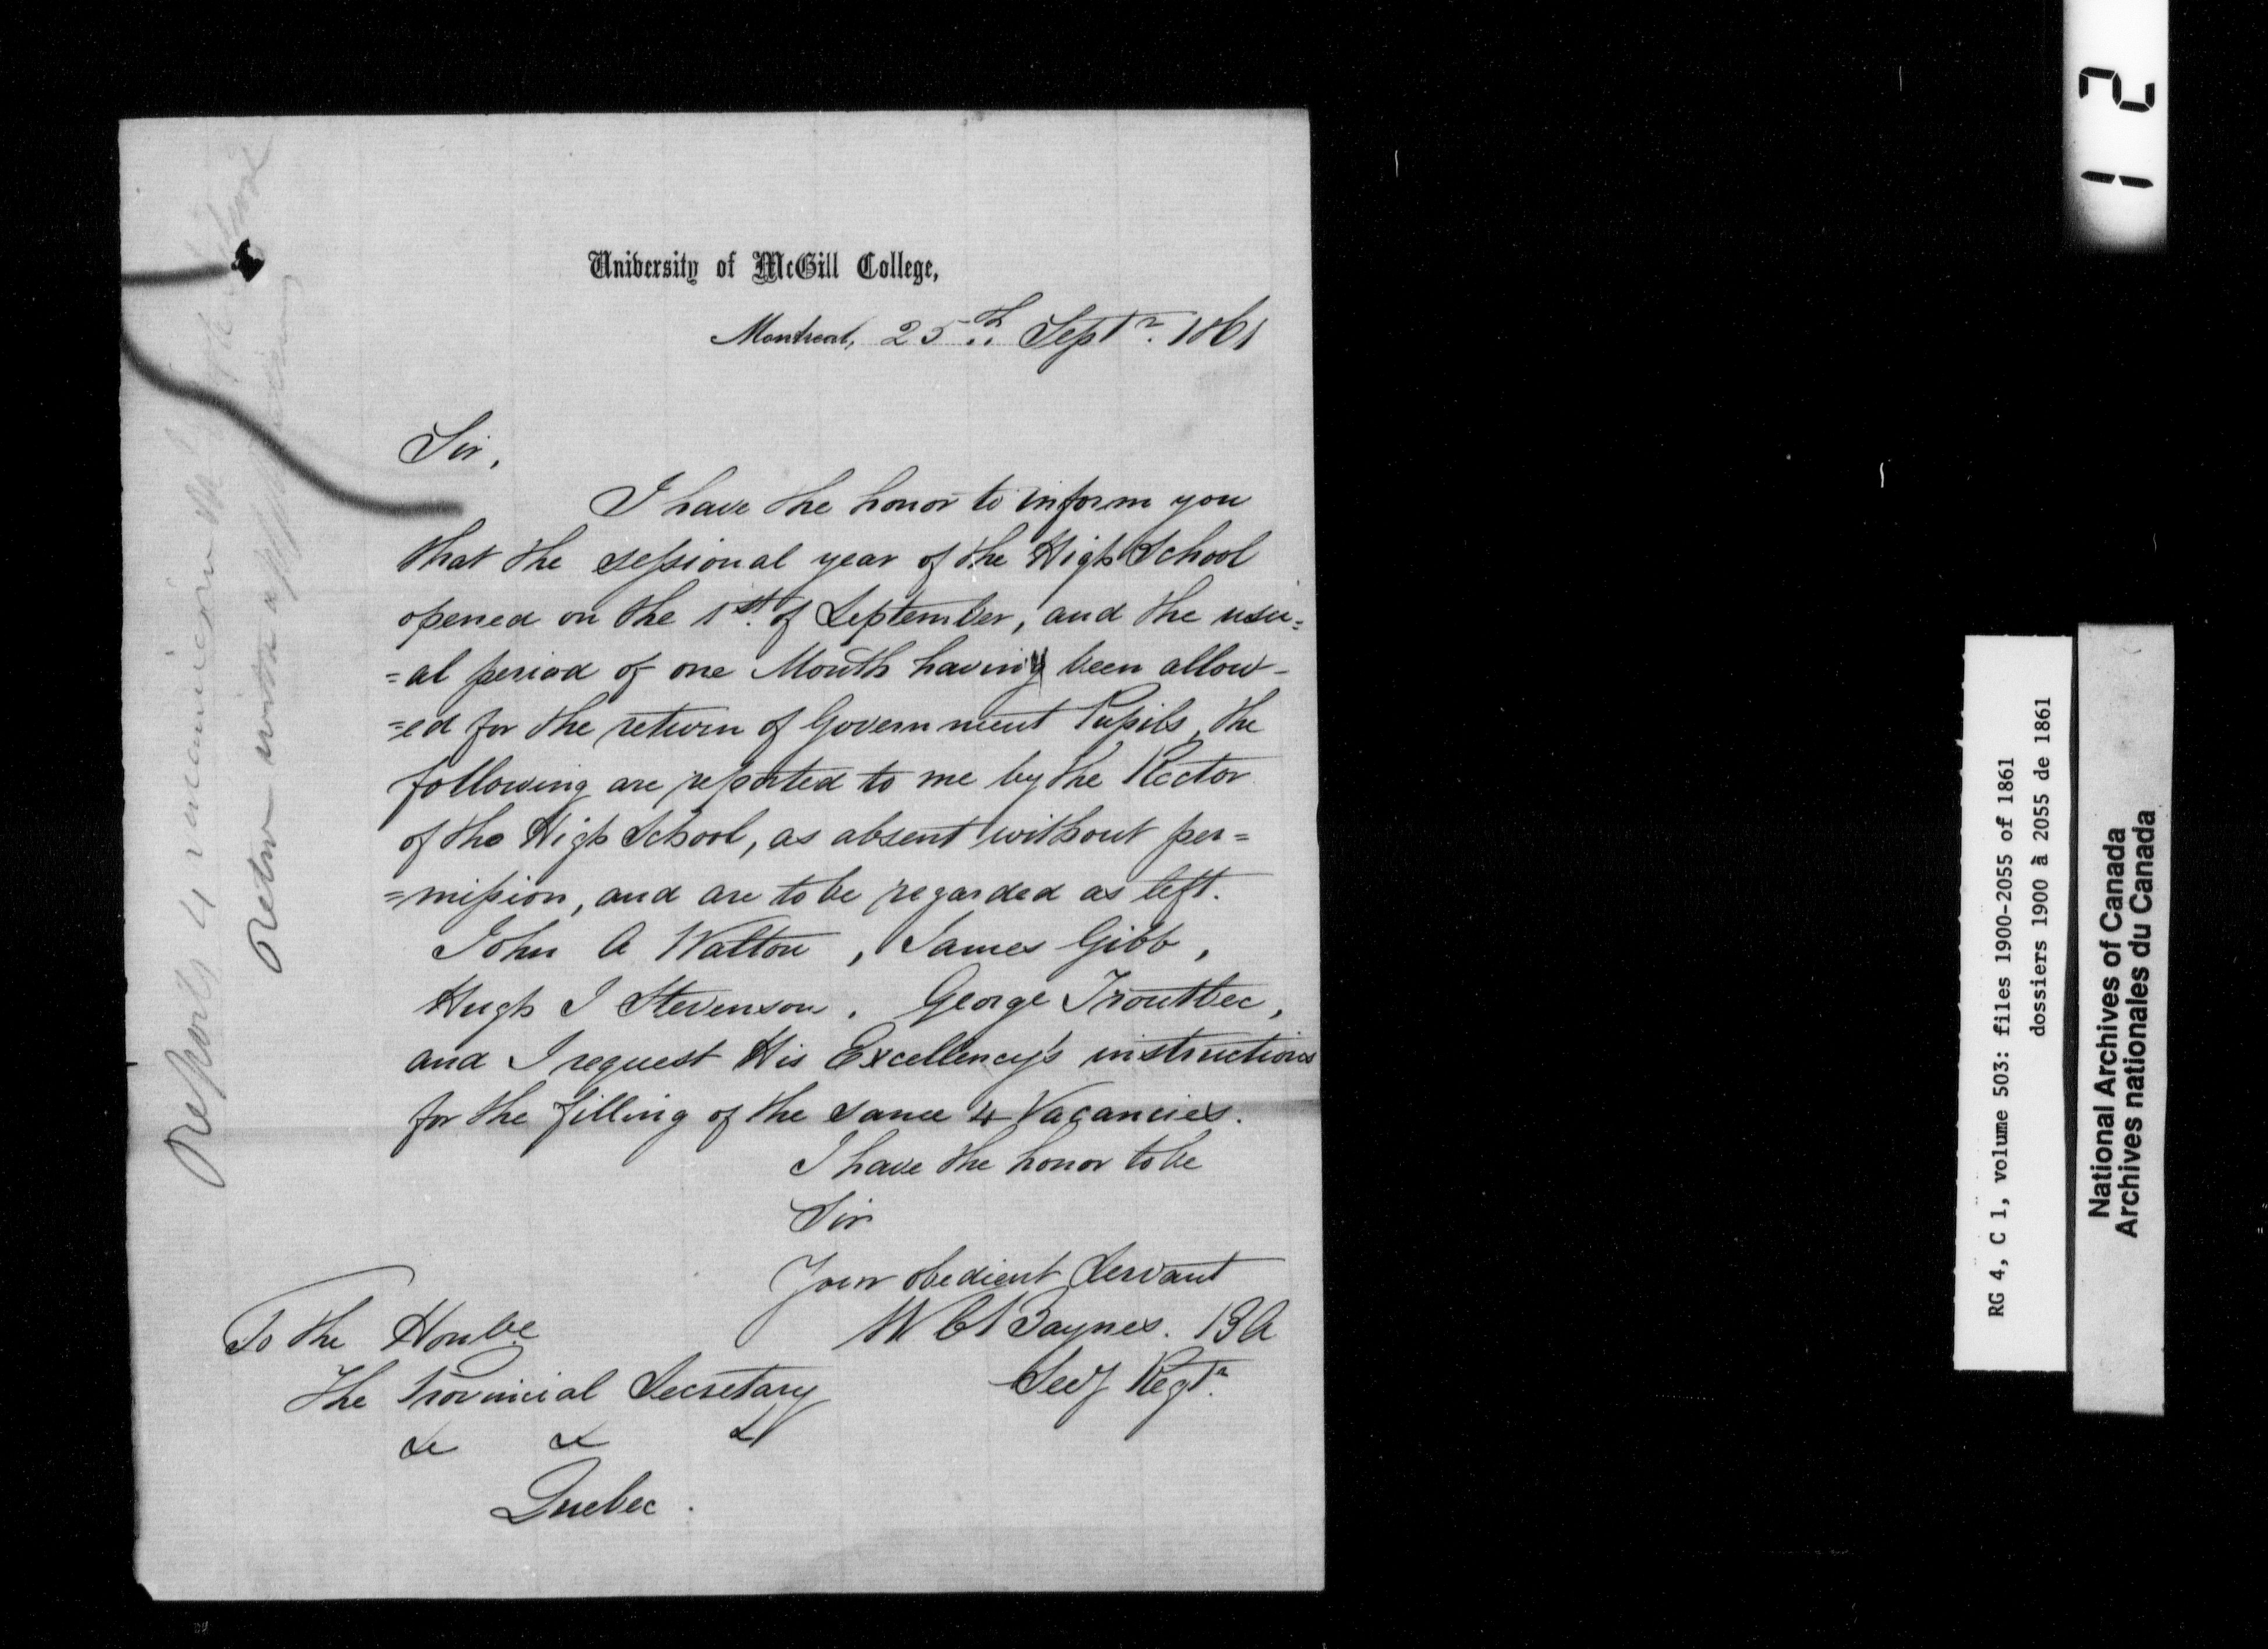 University of McGill College,
Montreal, 25th Septr. 1861
Sir,
I have the honor to inform you
that the sessional year of the High School
opened on the 1st. of September, and the usu=
=al period of one Month having been allow-
=ed for the return of Government Pupils, the
following are reported to me by the Rector
of the High School, as absent without per=
=mission, and are to be regarded as left.
John A Walton, James Gibb,
Hugh J Stevenson. George Troutbec,
and I request His Excellency's instructions
for the filling of the same 4 Vacancies.
I have the honor to be
Sir
Your obedient Servant
W C Baynes. BA
Secy Regtr.
To the Honble
The Provincial Secretary
&c &c &c
Quebec.
Reports 4 vacancies in the High School
Return with
12
RG 4, C 1, volume 503: files 1900-2055 of 1861
dossiers 1900 à 2055 de 1861
National Archives of Canada
Archives nationales du Canada